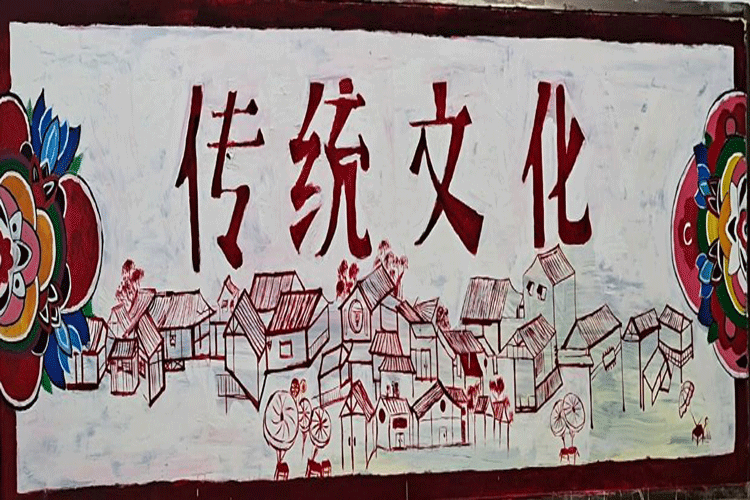 传统文化